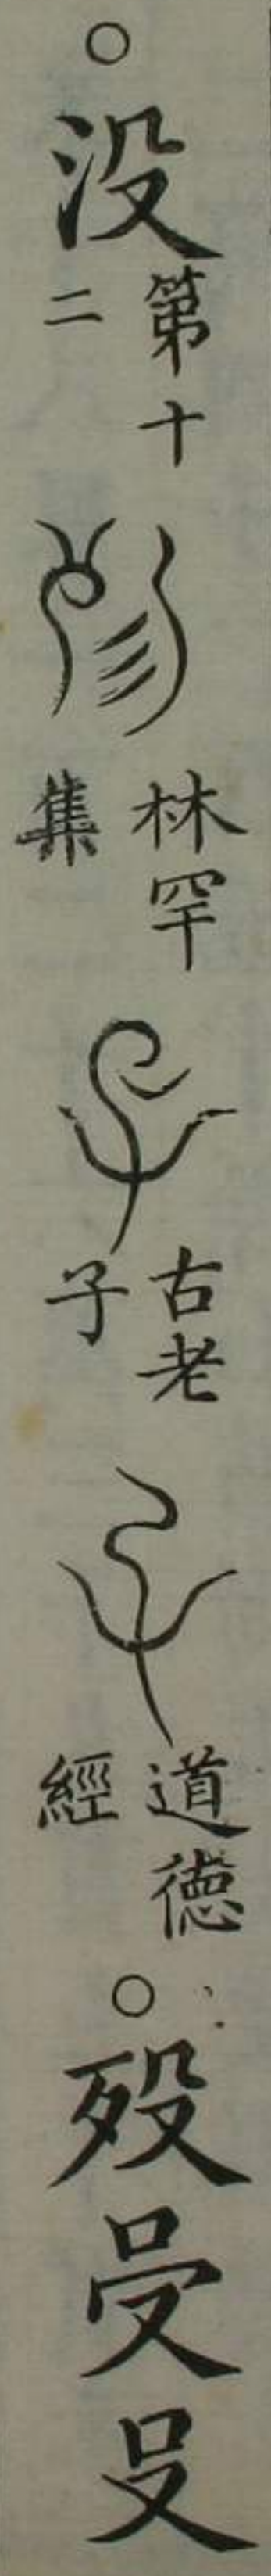 ○没第十二
林罕集
古老子
道德經
○歿𠬛殳